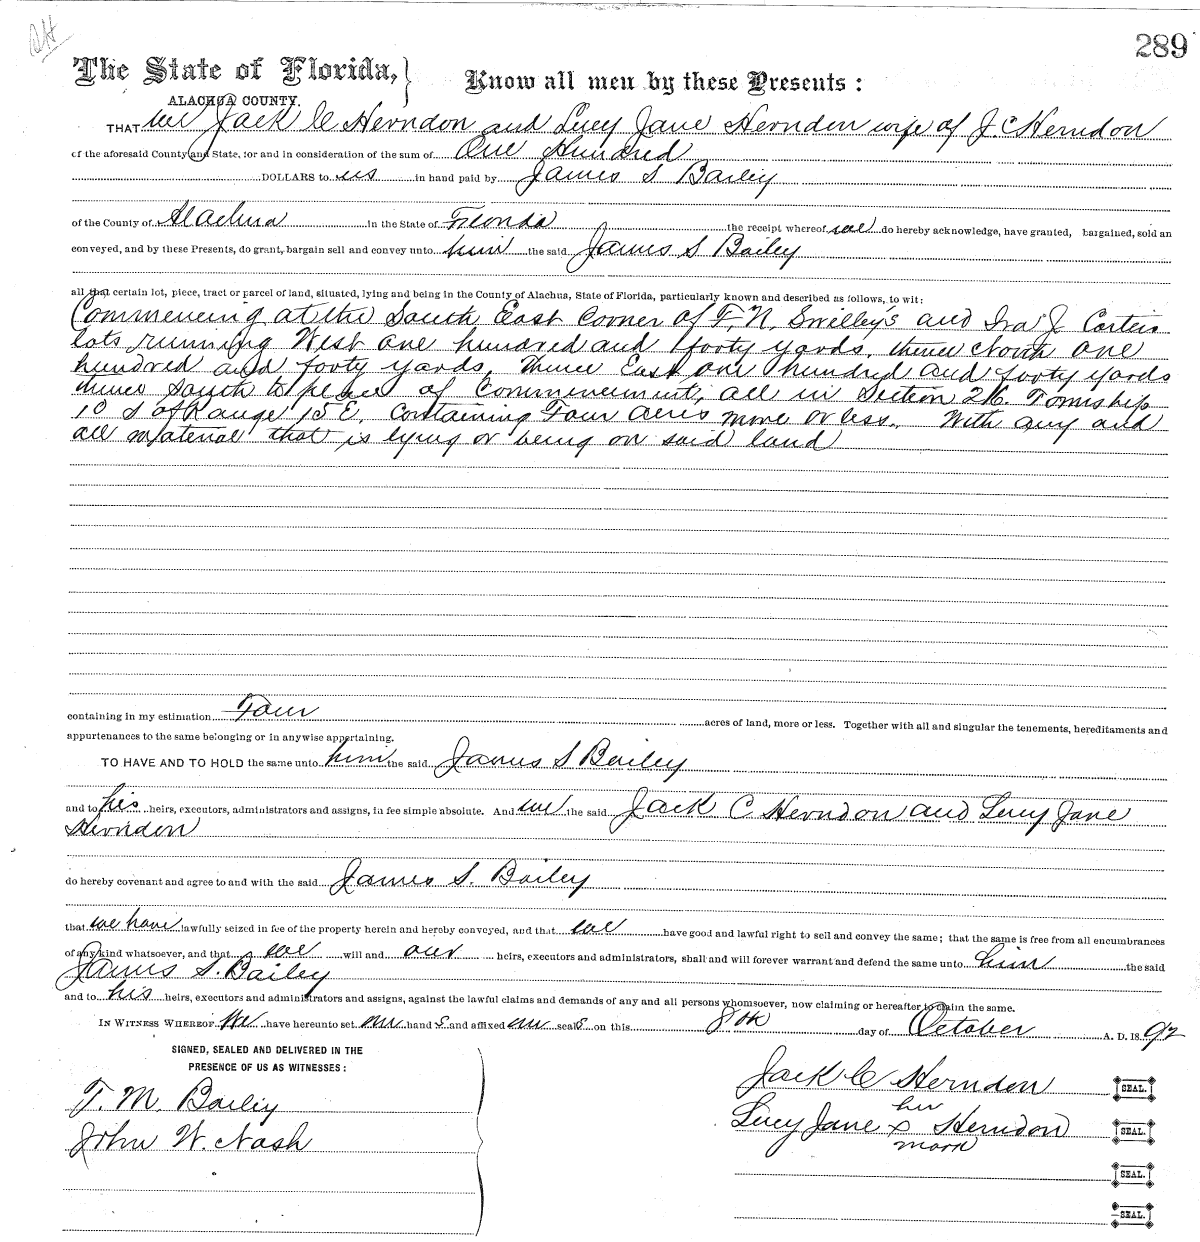 289
The State of Florida,} Know all men by these Presents:
ALACHUA COUNTY.
THAT we Jack C Herndon and Lucy Jane Herndon wife of J. C Herndon
of the aforesaid County and State, for and in consideration of the sum of One Hundred
DOLLARS to us in hand paid by James S Bailey
of the County of Alachua in the State of Florida the receipt whereof we do hereby acknowledge, have granted, bargained, sold an
conveyed, and by these Presents, do grant, bargain sell and convey unto him the said James S Bailey
all that certain lot, piece, tract or parcel of land, situated, lying and being in the County of Alachua, State of Florida, particularly known and described as follows, to wit:
Commencing at the South East Corner of F. N. Swilley's and Ira J. Carters
lots running West one hundred and forty yards, thence North one
hundred and forty yards, thence East one hundred and forty yards
thence South to place of Commencement, all in Section 26. Township
10 S of Range 15 E. Containing Four acres more or less. With any and
all material that is lying or being on said land
containing in my estimation Four acres of land, more or less. Together with all and singular the tenements, hereditaments and
appurtenances to the same belonging or in anywise appertaining.
TO HAVE AND TO HOLD the same unto him the said James S Bailey
and to his heirs, executors, administrators and assigns, in fee simple absolute. And we the said Jack C Herndon and Lucy Jane
Herndon
do hereby covenant and agree to and with the said James S. Bailey
that we have lawfully seized in fee of the property herein and hereby conveyed, and that we have good and lawful right to sell and convey the same; that the same is free from all encumbrances
of any kind whatsoever, and that we will and our heirs, executors and administrators, shall and will forever warrant and defend the same unto him the said
James S. Bailey
and to his heirs, executors and administrators and assigns, against the lawful claims and demands of any and all persons whomsoever, now claiming or hereafter to claim the same.
IN WITNESS WHEREOF We have hereunto set our hand s and affixed our seal s on this 8th day of October A. D. 18 92
SIGNED, SEALED AND DELIVERED IN THE
PRESENCE OF US AS WITNESSES:
Jack C Herndon SEAL.
T. M. Bailey
her
Lucy Jane x Herndon SEAL.
mark
John W. Nash
SEAL.
SEAL.